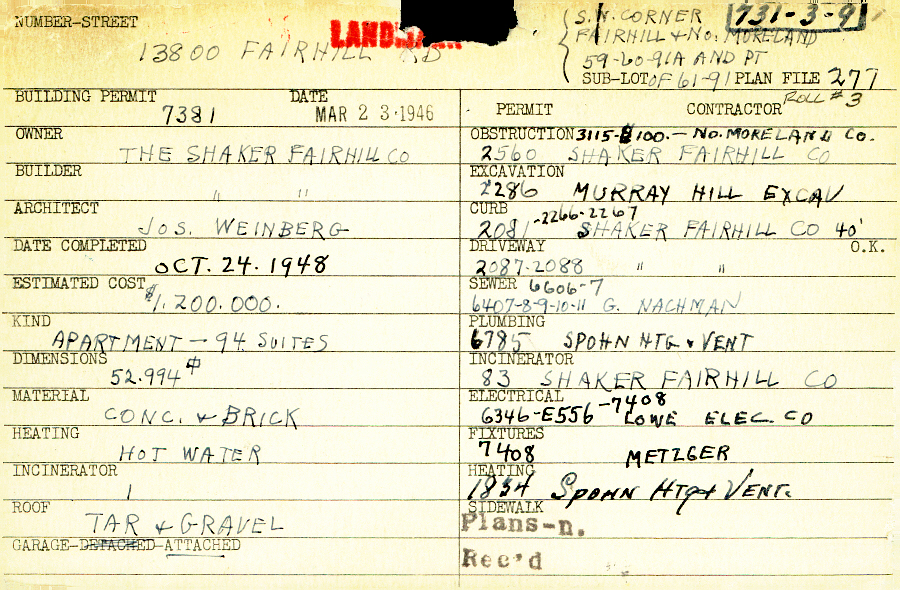 NUMBER-STREET
13800 FAIRHILL RD
S.W. CORNER
FAIRHILL & NO. MORELAND
59-60-91A AND PT
SUB-LOT OF 61-91 PLAN FILE 277
731-3-91
ROLL #3
BUILDING PERMIT DATE
7381 MAR 23 1946
OWNER
THE SHAKER FAIRHILL CO
BUILDER
" "
ARCHITECT
JOS. WEINBERG
DATE COMPLETED
OCT. 24. 1948
ESTIMATED COST
$1.200.000.
KIND
APARTMENT - 94 SUITES
DIMENSIONS
52.994
MATERIAL
CONC. & BRICK
HEATING
HOT WATER
INCINERATOR
1
ROOF
TAR & GRAVEL
GARAGE-DETACHED-ATTACHED
PERMIT CONTRACTOR
OBSTRUCTION 3115-$100.- NO. MORELAND CO.
2560 SHAKER FAIRHILL CO
EXCAVATION
2286 MURRAY HILL EXCAV
CURB
2081-2266-2267 SHAKER FAIRHILL CO 40'
DRIVEWAY O.K.
2087-2088 " "
SEWER 6606-7
6407-8-9-10-11 G. NACHMAN
PLUMBING
6785 SPOHN HTG & VENT
INCINERATOR
83 SHAKER FAIRHILL CO
ELECTRICAL
6346-E556-7408 LOWE ELEC. CO
FIXTURES
7408 METZGER
HEATING
1834 SPOHN HTG & VENT.
SIDEWALK
Plans-n.
Rec'd